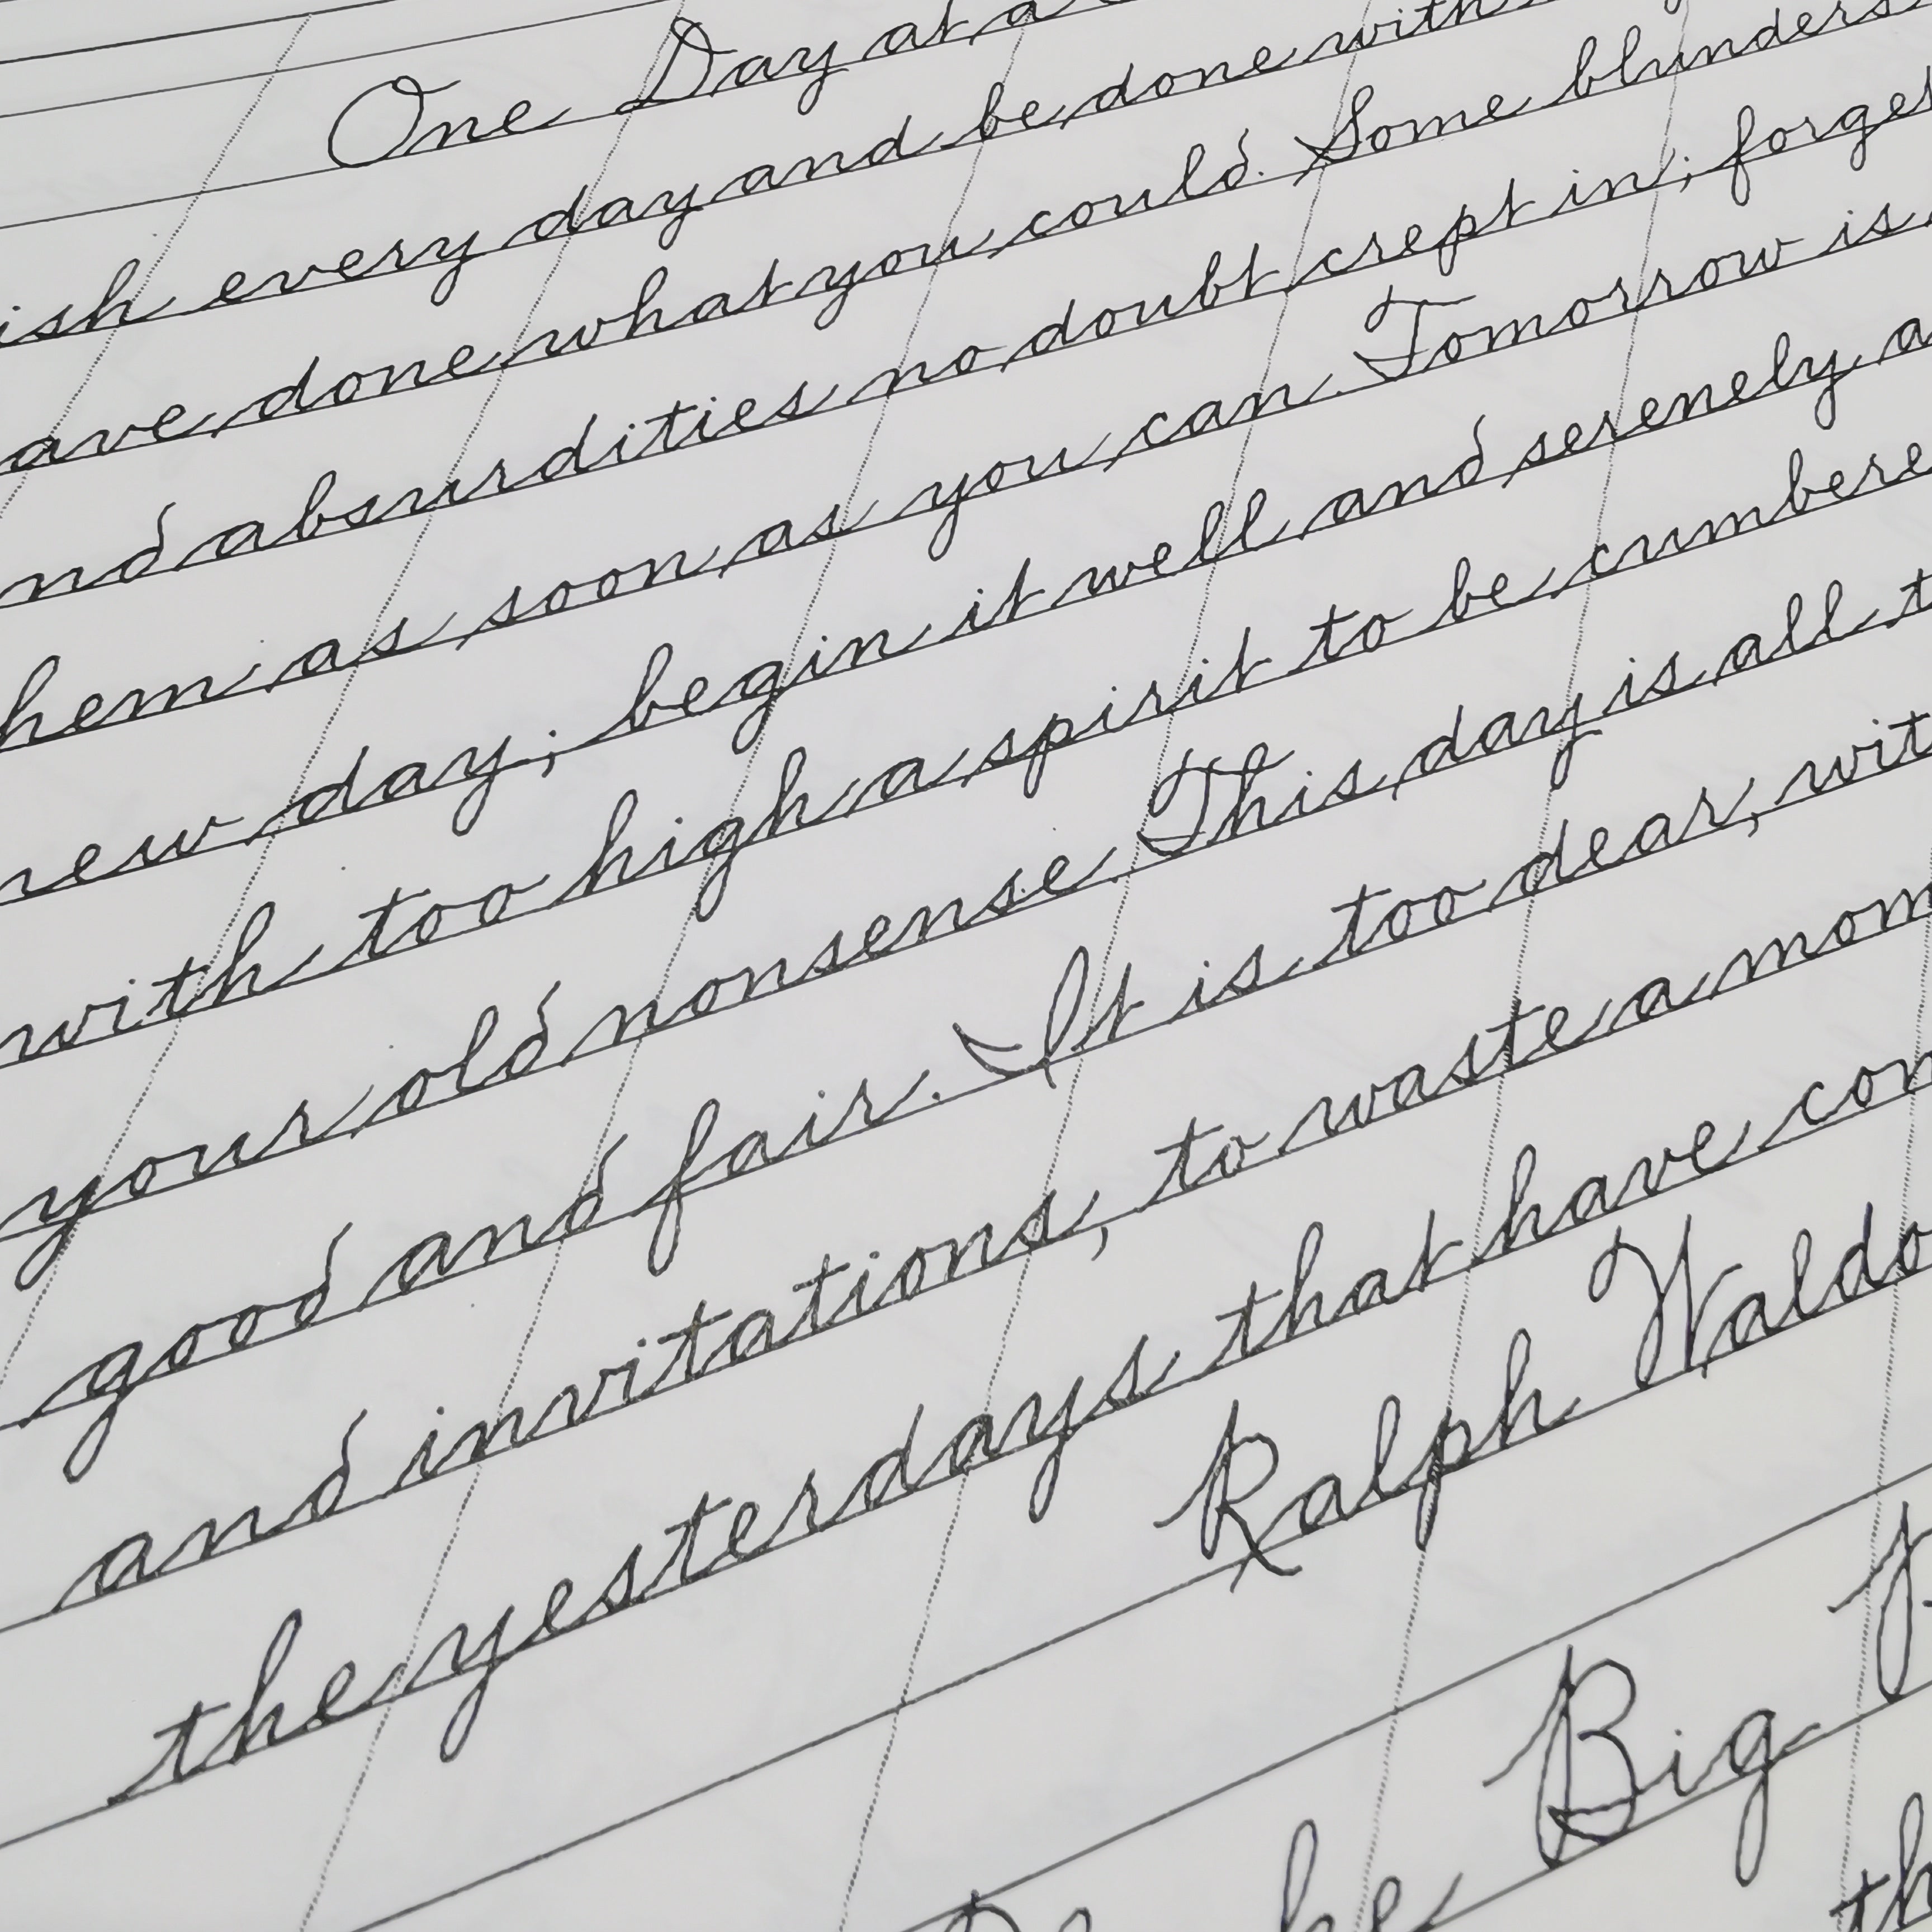 One Day at a
ish every day and be done with
ave done what you could. Some blunders
nd absurdities no doubt crept in; forge
hem as soon as you can. Tomorrow is
new day; begin it well and serenely a
with too high a spirit to be cumbere
your old nonsense. This day is all t
good and fair. It is too dear, wit
and invitations, to waste a mom
the yesterdays that have com
Ralph Waldo
Big
the